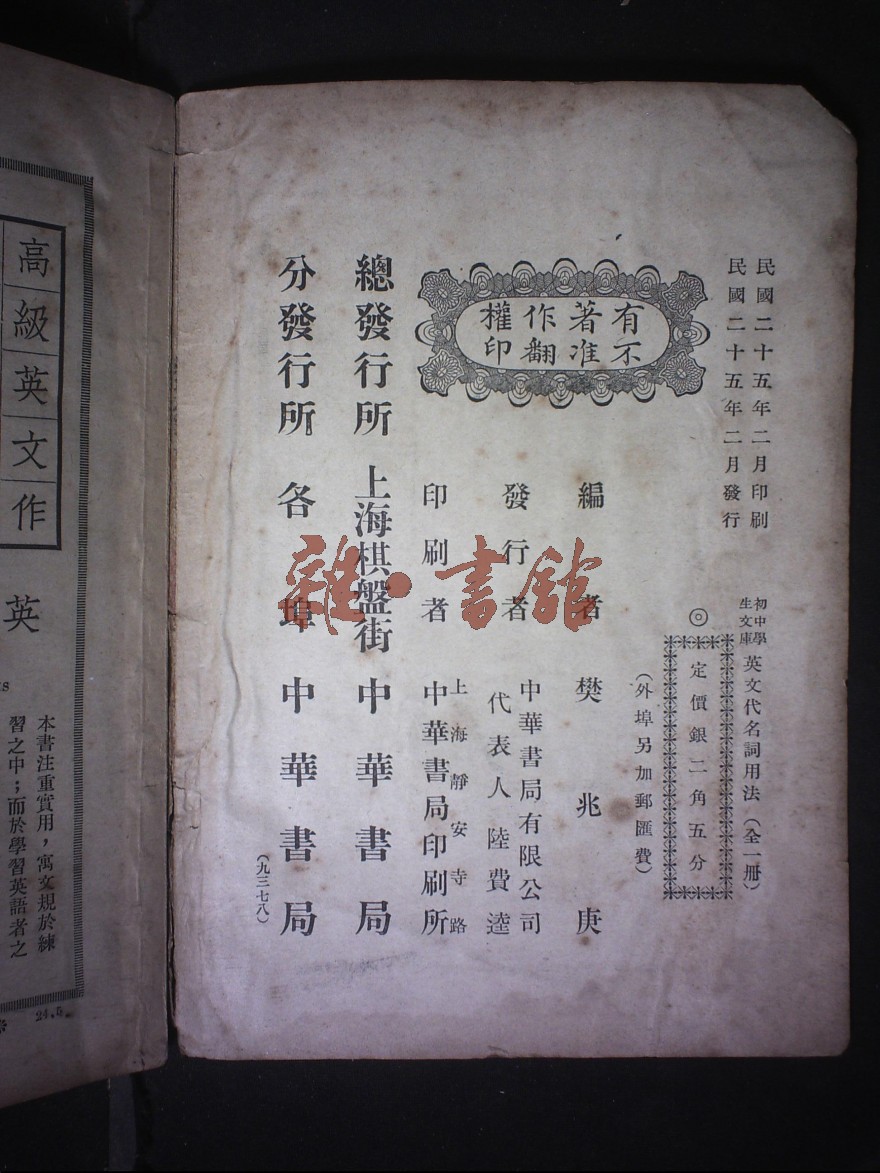 民國二十五年二月印刷
民國二十五年二月發行
初中學生文庫 英文代名詞用法（全一册）
◎定價銀二角五分
（外埠另加郵匯費）
有著作權
不准翻印
編者 樊兆庚
發行者 中華書局有限公司
代表人 陸費逵
印刷者 上海靜安寺路
中華書局印刷所
總發行所 上海棋盤街 中華書局
分發行所 各埠 中華書局
（九三七八）
雜·書館
高級英文作
英
本書注重實用，寓文規於練
習之中；而於學習英語者之
24,5.